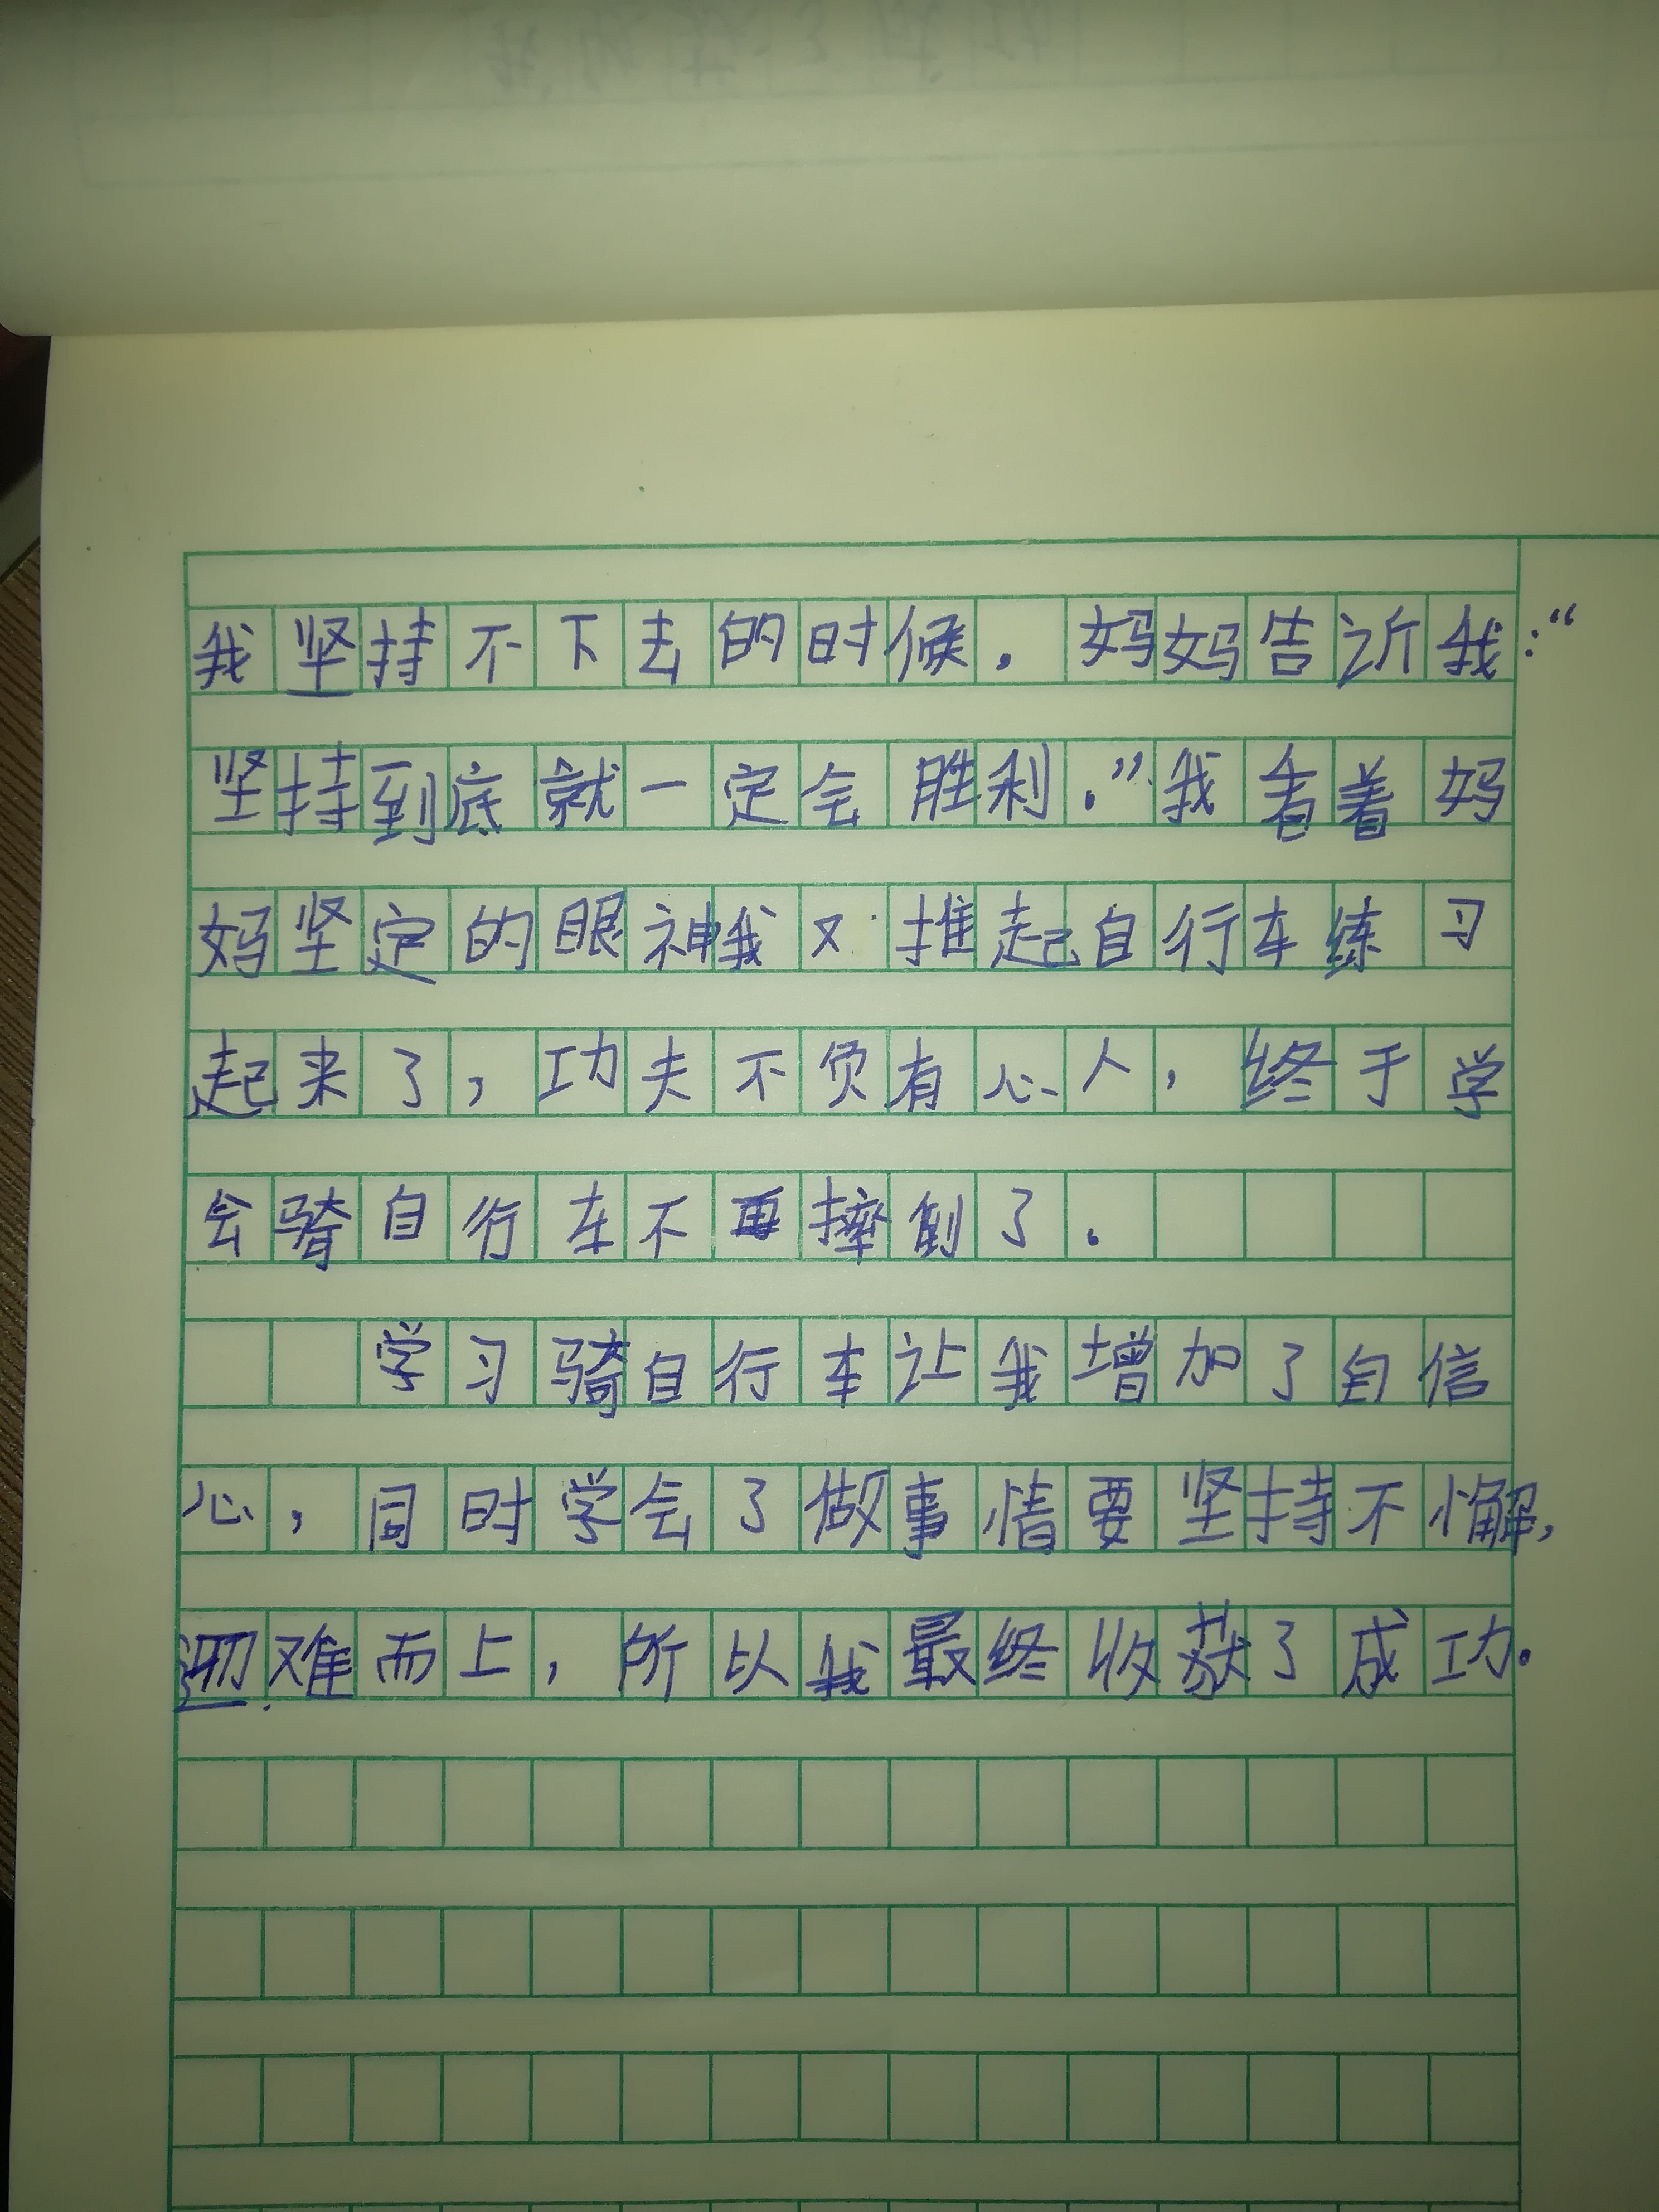 我坚持不下去的时候。妈妈告诉我:“
坚持到底就一定会胜利.”我看着妈
妈坚定的眼神我又推起自行车练习
起来了,功夫不负有心人,终于学
会骑自行车不再摔倒了.
学习骑自行车让我增加了自信
心,同时学会了做事情要坚持不懈,
迎难而上,所以我最终收获了成功.